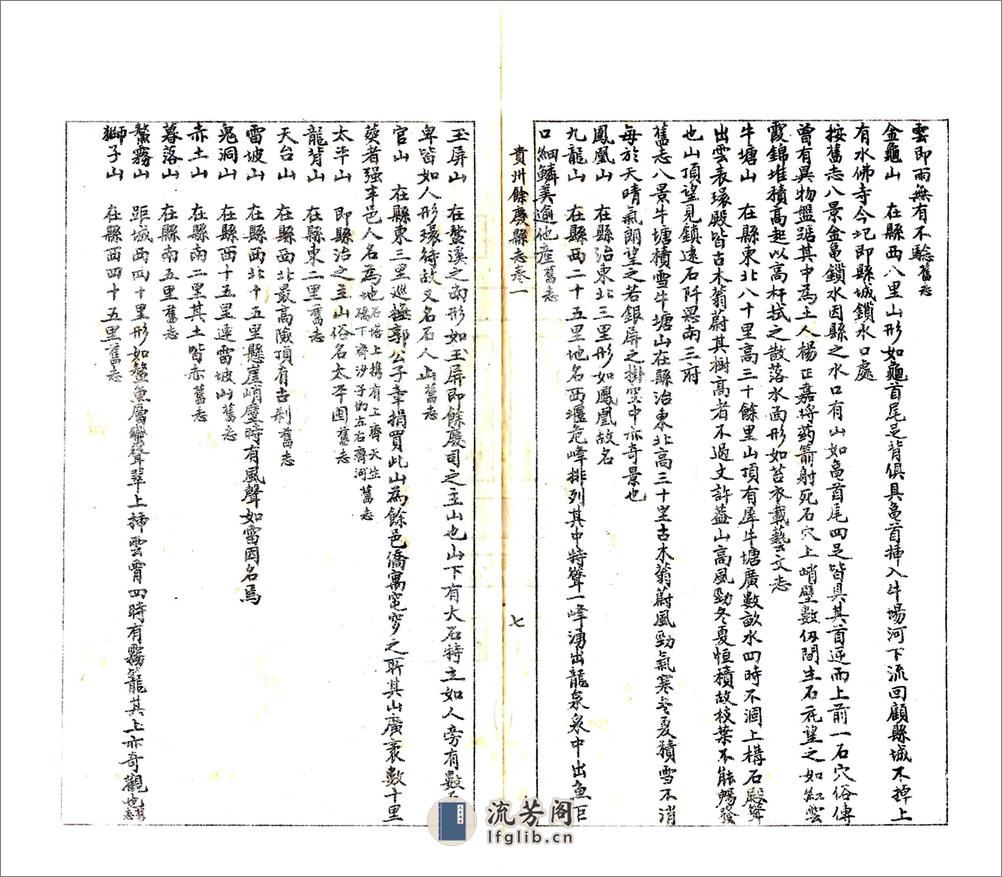 雲即雨無有不驗舊志
金龜山 在縣西八里山形如龜首尾足背俱具龜首挿入牛場河下流回顧縣城不掉上
有水佛寺今圮即縣城鎖水口處
按舊志八景金龜鎖水因縣之水口有山如龜首尾四足皆具其首逆而上前一石穴俗傳
曾有異物盤踞其中為土人楊正嘉將药箭射死石穴上峭壁數仭間生石花望之如紅雲
霞錦堆積高起以高杆拭之散落水面形如苔衣載藝文志
牛塘山 在縣東北八十里高三十餘里山頂有犀牛塘廣數畝水四時不涸上構石殿聳
出雲表環殿皆古木蓊蔚其樹高者不過丈許蓋山高風勁冬夏恒積故枝葉不能暢發
也山頂望見鎮遠石阡思南三府
舊志八景牛塘積雪牛塘山在縣治東北高三十里古木蓊蔚風勁氣寒冬夏積雪不消
每於天晴氣朗望之若銀屏之掛空中亦奇景也
鳳凰山 在縣治東北三里形如鳳凰故名
九龍山 在縣西二十五里地名西堰危峰排列其中特聳一峰湧出龍泉泉中出魚巨
口細鱗美逾他產舊志
貴州餘慶縣志卷一
七
玉屏山 在鰲溪之南形如玉屏即餘慶司之主山也山下有大石特立如人旁有數石
卑皆如人形環侍故又名石人山舊志
官山 在縣東三里巡撫郭公子章捐買此山為餘邑僑寓窀穸之所其山廣袤數十里
葬者强半邑人名為地石塔上構有上齊天生橋下齊沙子坳左右齊河舊志
太平山 即縣治之主山俗名太平囤舊志
龍背山 在縣東二里舊志
天台山 在縣西北最高險頂有古刹舊志
雷坡山 在縣西北十五里懸崖峭壁時有風聲如雷因名焉
鬼洞山 在縣西十五里連雷坡山舊志
赤土山 在縣南二里其土皆赤舊志
暮落山 在縣南五里舊志
鰲霧山 距城西四十里形如鰲魚層巒聳翠上挿雲霄四時有霧籠其上亦奇觀也舊志
獅子山 在縣西四十五里舊志
流芳阁
lfglib.cn